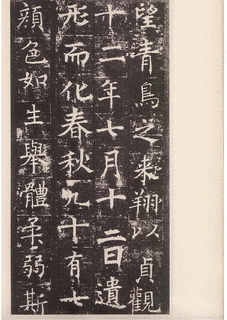 望青鳥之来翔以貞觀
十二年七月十二日遺
形而化春秋九十有七
顔色如生舉體柔弱斯